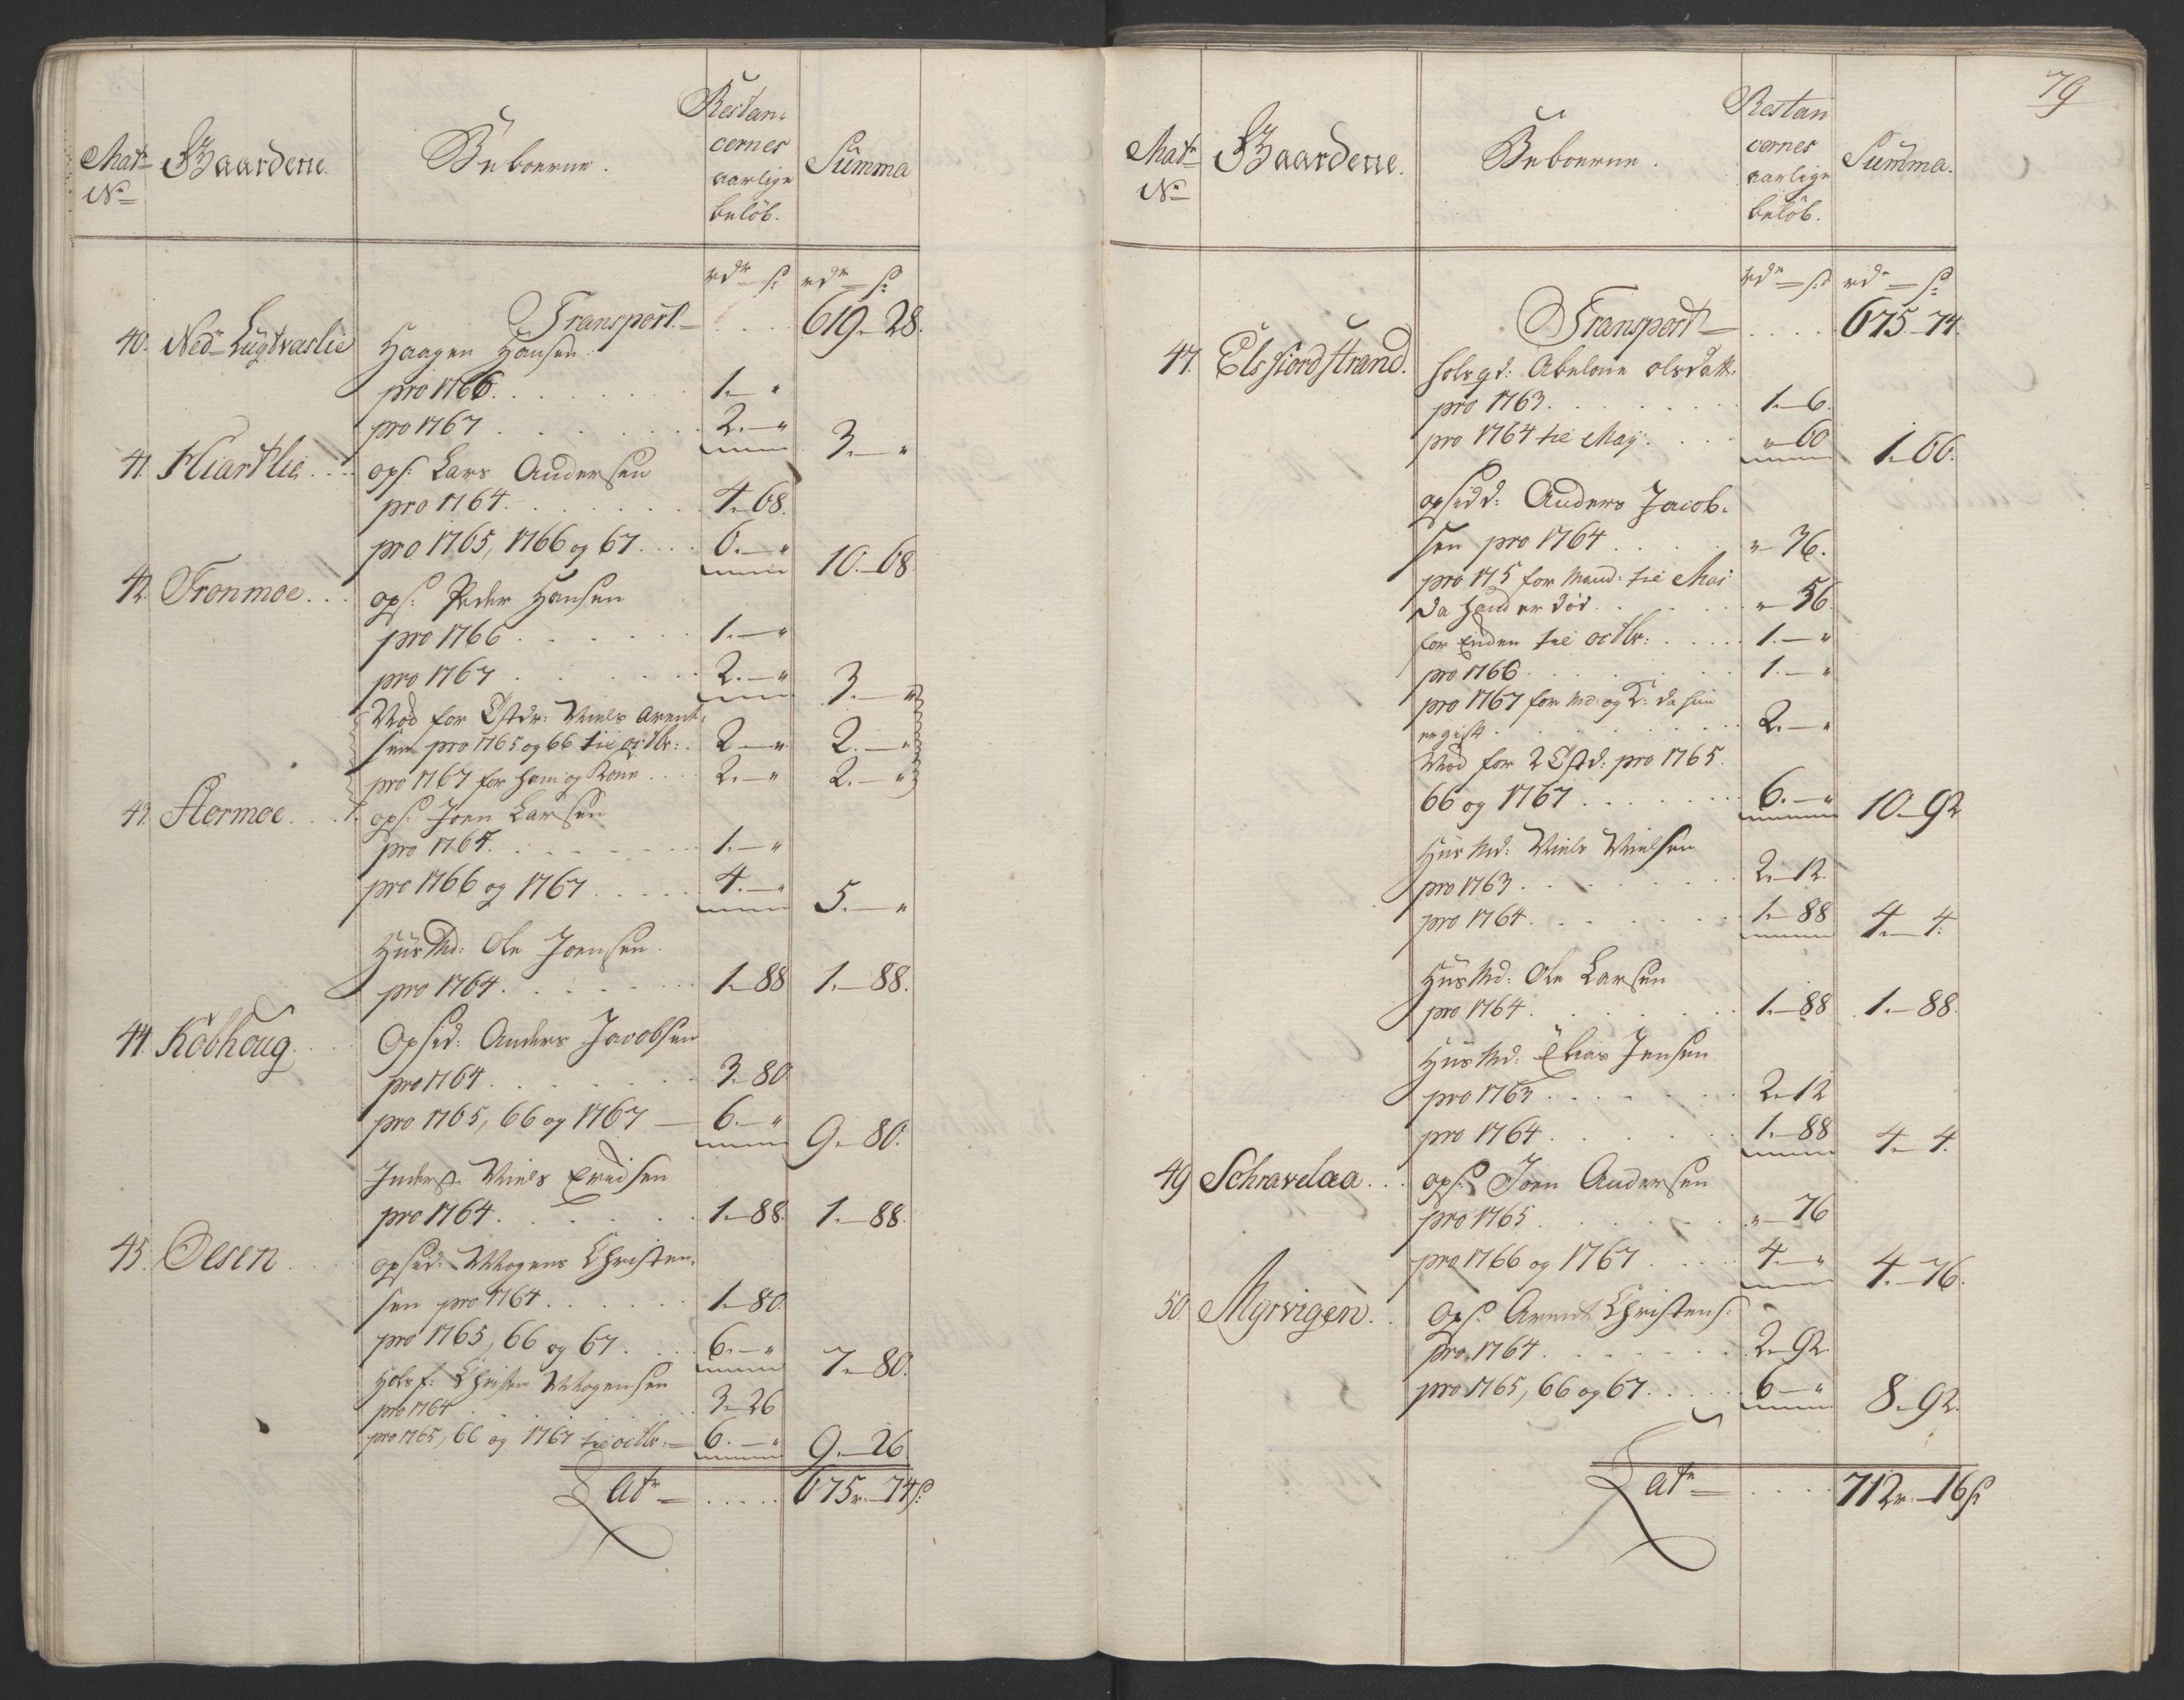 Matr No
Gaardene.
Beboerne.
Restan-
cernes
aarlige
beløb.
Summa
rdr — s: rdr — s:
Transport — . . . . 619 — 28.
40. Nedr Lügtvaslie Haagen Hansen
pro 1766 . . . . . 1. — "
pro 1767 . . . . . 2. — " 3. — "
41. Kiartlie . . . ops: Lars Andersen
pro 1764 . . . . . 4. — 68.
pro 1765, 1766 og 67 . . . 6. — " 10. — 68
42. Tronmoe . . . ops: Peder Hansen
pro 1766 . . . . . 1. — "
pro 1767 . . . . . 2. — " 3. — "
Nød for Tstdr: Niels Arent-
sen pro 1765 og 66 til octbr: . 2 — " 2. — "
pro 1767 for ham og Kone . . . 2. — " 2. — "
43. Stormoe . . . ops: Joen Larsen
pro 1764. . . . . . 1. — "
pro 1766 og 1767 . . . . 4. — " 5. — "
HüsMd: Ole Joensen
pro 1764. . . . . . 1. — 88 1. — 88.
44. Kobhoug. . . Opsid: Anders Jacobsen
pro 1764 . . . . . 3. — 80
pro 1765, 66 og 1767 — 6. — " 9. — 80.
Inderst. Niels Eridsen
pro 1764. . . . . . 1. — 88. 1. — 88.
45. Olsen . . . opsid: Mogens Christen-
sen pro 1764 . . . . . 1. — 80.
pro 1765, 66 og 67 . . . . 6. — " 7. — 80.
Holsf: Christen Mogensen
pro 1764 . . . . . 3 — 26
pro 1765, 66 og 1767 til octbr: — 6. — " 9. — 26
Latr — . . . . . 675r. — 74s:
79
Matr No
Gaardene.
Beboerne.
Restan
cernes
aarlige
beløb.
Summa.
rdr — s: rdr — s:
Transport — . . . . 675 — 74.
47. Elsfiordstrand. holsqd: Abelone olsdatt:
pro 1763. . . . . . 1. — 6.
pro 1764 til Maÿ . . . . " — 60 1. — 66.
opsidd: Anders Jacob-
sen pro 1764 . . . . " — 36.
pro 175 for Mand: til Mai
da hand er död . . . . " — 56
for Enden til octbr: . . . . 1. — "
pro 1766 . . . . . 1. — "
pro 1767 for Md: og K: da hun
er gift . . . . . 2. — "
Nød for 2 Tstd: pro 1765.
66 og 1767 . . . . . 6. — " 10 — 92
Hüs Md: Niels Nielsen
pro 1763 . . . . . 2. — 12.
pro 1764. . . . . . 1. — 88 4. — 4.
HüsMd: Ole Larsen
pro 1764 . . . . . 1. — 88 1. — 88.
HüsMd: Elias Jensen
pro 1763 . . . . . 2. — 12
pro 1764 . . . . . 1. — 88 4. — 4.
49 Schravelaa . . . ops: Joen Andersen
pro 1765 . . . . . " — 76
pro 1766 og 1767 . . . . 4. — " 4. — 76.
50. Myrvigen . . ops: Arent Christens:
pro 1764 . . . . . 2. — 92.
pro 1765, 66 og 67 . . . . . 6 — " 8. — 92.
Latr — . . . . 712r. — 16s: